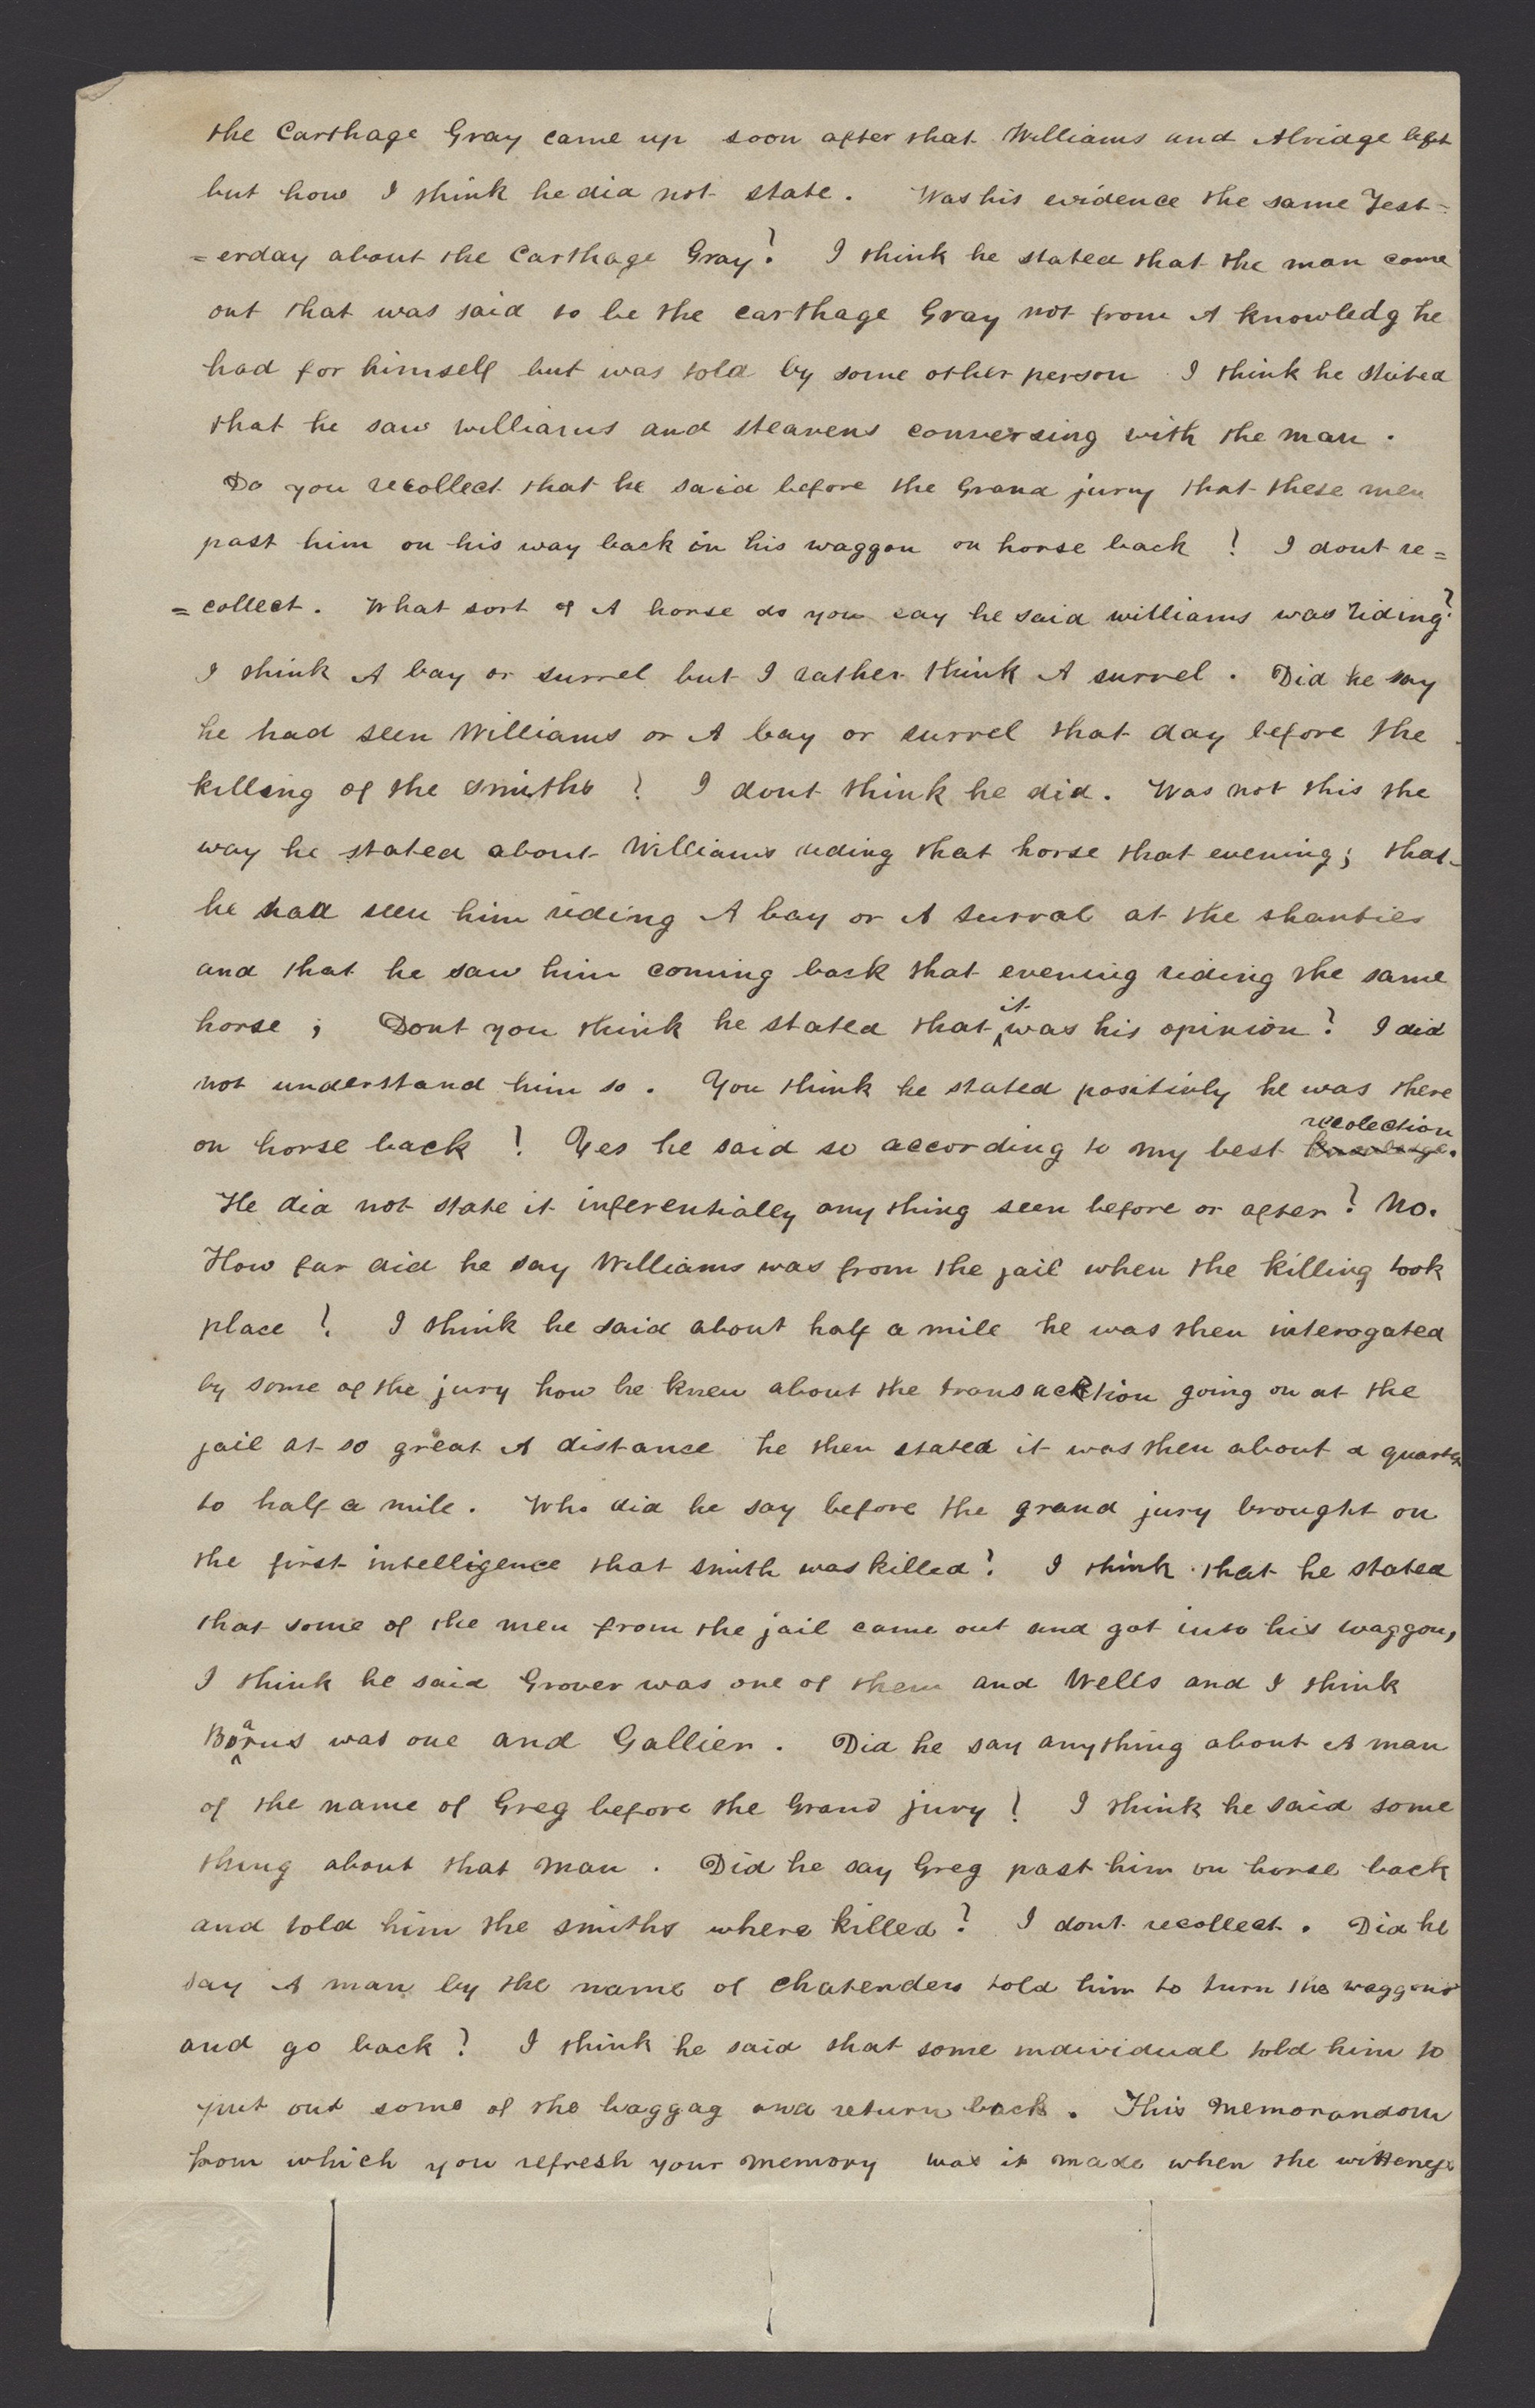 the Carthage Gray came up soon after that Williams and Alridge left
but how I think he did not state. Was his evidence the same Yest=
=erday about the Carthage Gray? I think he stated that the man come
out that was said to be the carthage Gray not from A knowledg he
had for himself but was told by some other person I think he stated
that he saw williams and steavens conversing with the man.
Do you recollect that he said before the Grand jury that these men
past him on his way back in his waggon on horse back? I dont re=
=collect. What sort of A horse do you say he said williams was riding?
I think A bay or surrel but I rather think A surrel. Did he say
he had seen Williams or A bay or surrel that day before the
killing of the smiths? I dont think he did. Was not this the
way he stated about Williams riding that horse that evening; that
he had seen him riding A bay or A surral at the shanties
and that he saw him coming back that evening riding the same
horse; Dont you think he stated that it was his opinion? I did
not understand him so. You think he stated positivly he was there
on horse back? Yes he said so according to my best knowledge recolection.
He did not state it inferentially any thing seen before or after? No.
How far did he say Williams was from the jail when the killing took
place? I think he said about half a mile he was then interogated
by some of the jury how he knew about the transacktion going on at the
jail at so great A distance he then stated it was then about a quarter
to half a mile. Who did he say before the grand jury brought on
the first intelligence that smith was killed? I think that he stated
that some of the men from the jail came out and got into his waggon,
I think he said Grover was one of them and Wells and I think
Boarus was one and Gallier. Did he say any thing about A man
of the name of Greg before the Grand jury? I think he said some
thing about that man. Did he say Greg past him on horse back
and told him the smiths where killed? I dont recollect. Did he
say A man by the name of Chatenders told him to turn the waggons
and go back? I think he said that some individual told him to
put out some of the baggag and return back. This memorandom
from which you refresh your memory was it made when the witteness